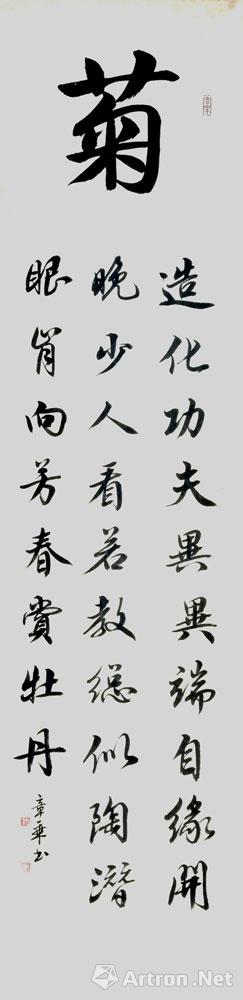 菊
造化功夫異異端自緣開
晚少人看若教總似陶潛
眼肯向芳春賞牡丹
章華书
Artron.Net
雅昌艺术网